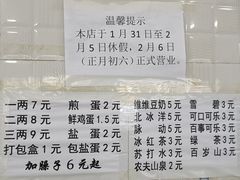 温馨提示
本店于1月31日至2
月5日休假，2月6日
（正月初六）正式营业。
一两7元 煎蛋2元
二两8元 鲜鸡蛋1.5元
三两9元 盐蛋2元
打包盒1元 包盐蛋2元
加臊子6元起
维维豆奶5元
北冰洋5元
脉动5元
冰红茶3元
苏打水3元
农夫山泉2元
雪碧3元
可口可乐3元
百事可乐3元
绿茶3元
百岁山3元